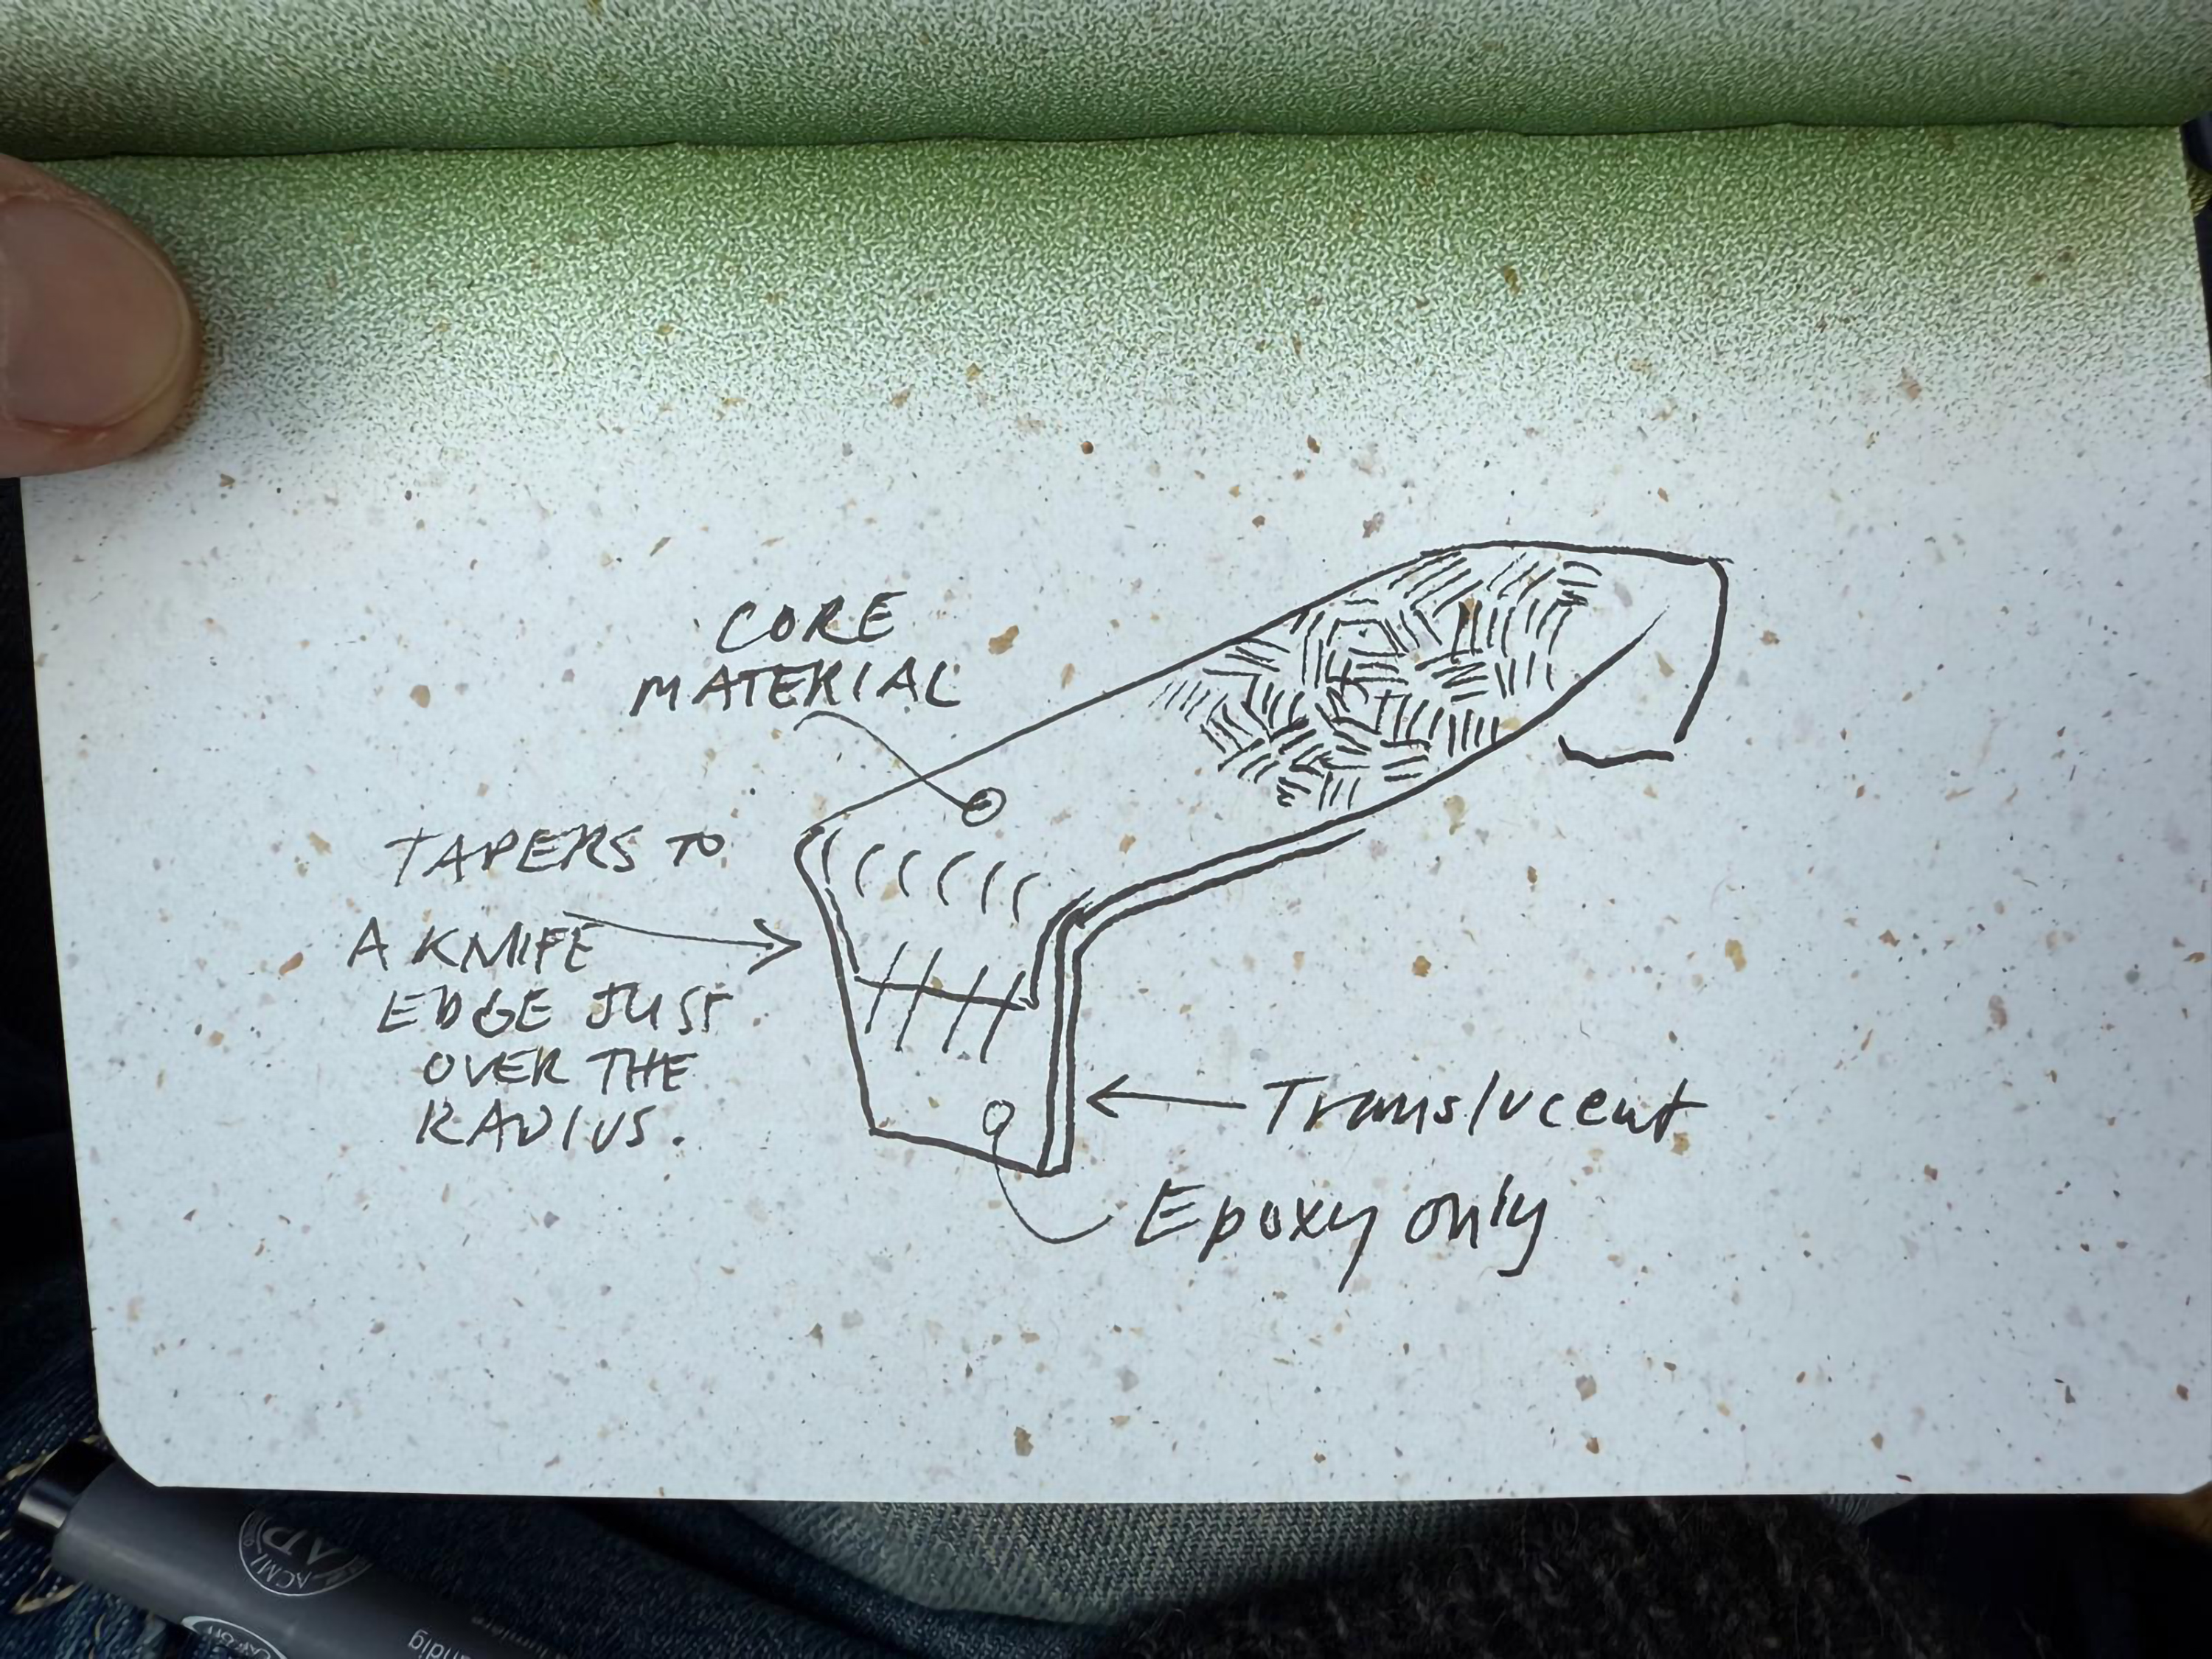 CORE
MATERIAL
TAPERS TO
A KNIFE
EDGE JUST
OVER THE
RADIUS.
Translucent
Epoxy only
ACMI
AP